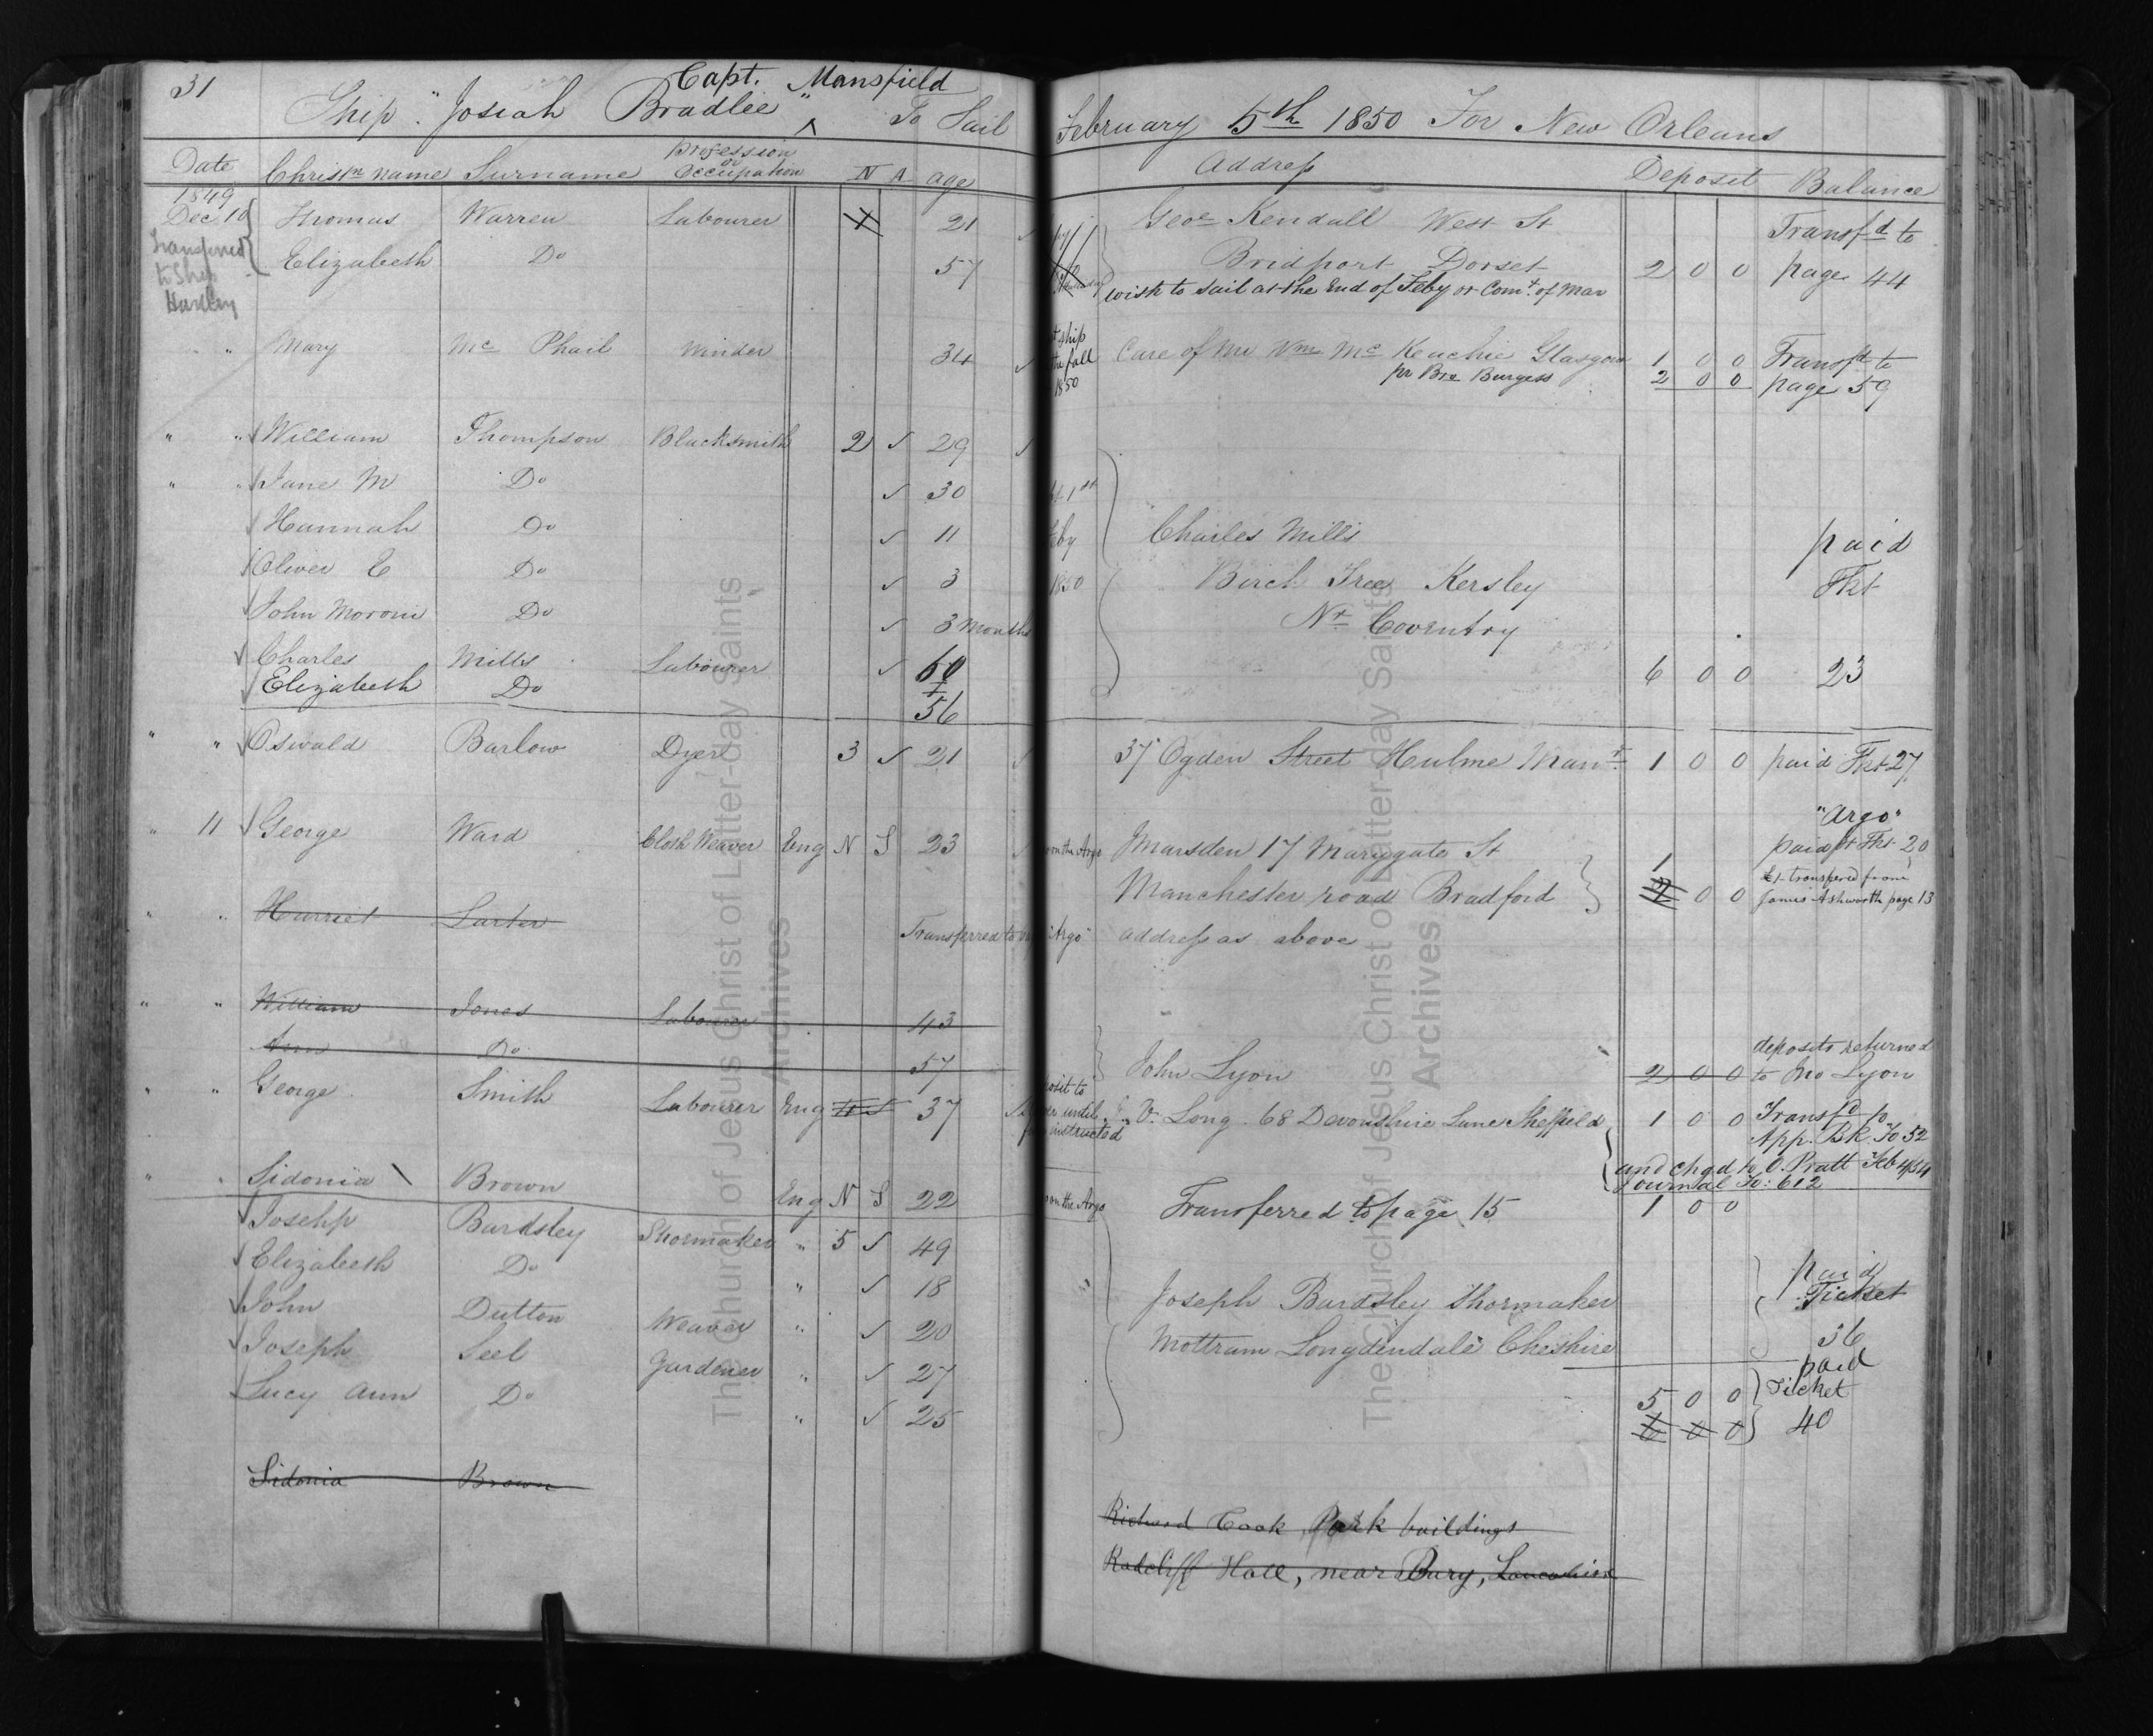 31
Capt. Mansfield
Ship "Josiah Bradlee" ^ To Sail February 5th 1850 For New Orleans
Date Christn name Surname Profession or Occupation N A age Address Deposit Balance
1849
Dec 10 Thomas Warren Labourer 21 Geoe Kendall West St Transfd to
Transferred to Ship Hartley
Elizabeth Do 57 Bridport Dorset 2 0 0 page 44
wish to sail at the End of Feby or Comt. of Mar
" Mary Mc Phail Winder 34 ship the fall 1850 Care of Mr Wm Mc Keachie Glasgow 1 0 0 Transfd to
pr Bro Burgess 2 0 0 page 59
" " William Thompson Blacksmith 2 ✓ 29
" " Jane M Do ✓ 30 1st
Hannah Do ✓ 11 Charles Mills paid
Oliver E Do ✓ 3 1850 Birch Tree Kersley Tkt
John Moroni Do ✓ 3 Months Nr Coventry
Charles Mills Labourer ✓ 60 6 0 0 23
Elizabeth Do 56
" " Oswald Barlow Dyer 3 ✓ 21 37 Ogden Street Hulme Manr. 1 0 0 paid Tkt 27
"Argo"
" 11 George Ward Cloth Weaver Eng N S 23 on the Argo Marsden 17 Marygate St 1 paid Tkt 20
Manchester road Bradford 2 0 0 £1 transfered from
James Ashworth page 13
" " Harriet Larter Transferred to "Argo" address as above
" " William Jones Labourer 43
Ann Do 57 John Lyon 2 0 0 deposits returned
to Jno Lyon
" " George Smith Labourer Eng 37 until instructed V. Long. 68 Devonshire Lane Sheffield 1 0 0 Transfd to
App. Bk. Fo 52
and chgd to O. Pratt Feb
Journal Fo: 612
" " Sidonia Brown Eng N S 22 on the Argo Transferred to page 15 1 0 0
Josehp Bardsley Shoemaker " 5 ✓ 49
Elizabeth Do " ✓ 18 Joseph Bardsley Shoemaker paid
Ticket
John Dutton Weaver " ✓ 20 Mottram Longdendale Cheshire 36
Joseph Seel Gardener " ✓ 27 paid
Lucy Ann Do " ✓ 25 5 0 0 Ticket
6 0 0 40
Sidonia Brown
Richard Cook Park buildings
Radcliff Hall, near Bury, Lancashire
The Church of Jesus Christ of Latter-day Saints
Archives
The Church of Jesus Christ of Latter-day Saints
Archives